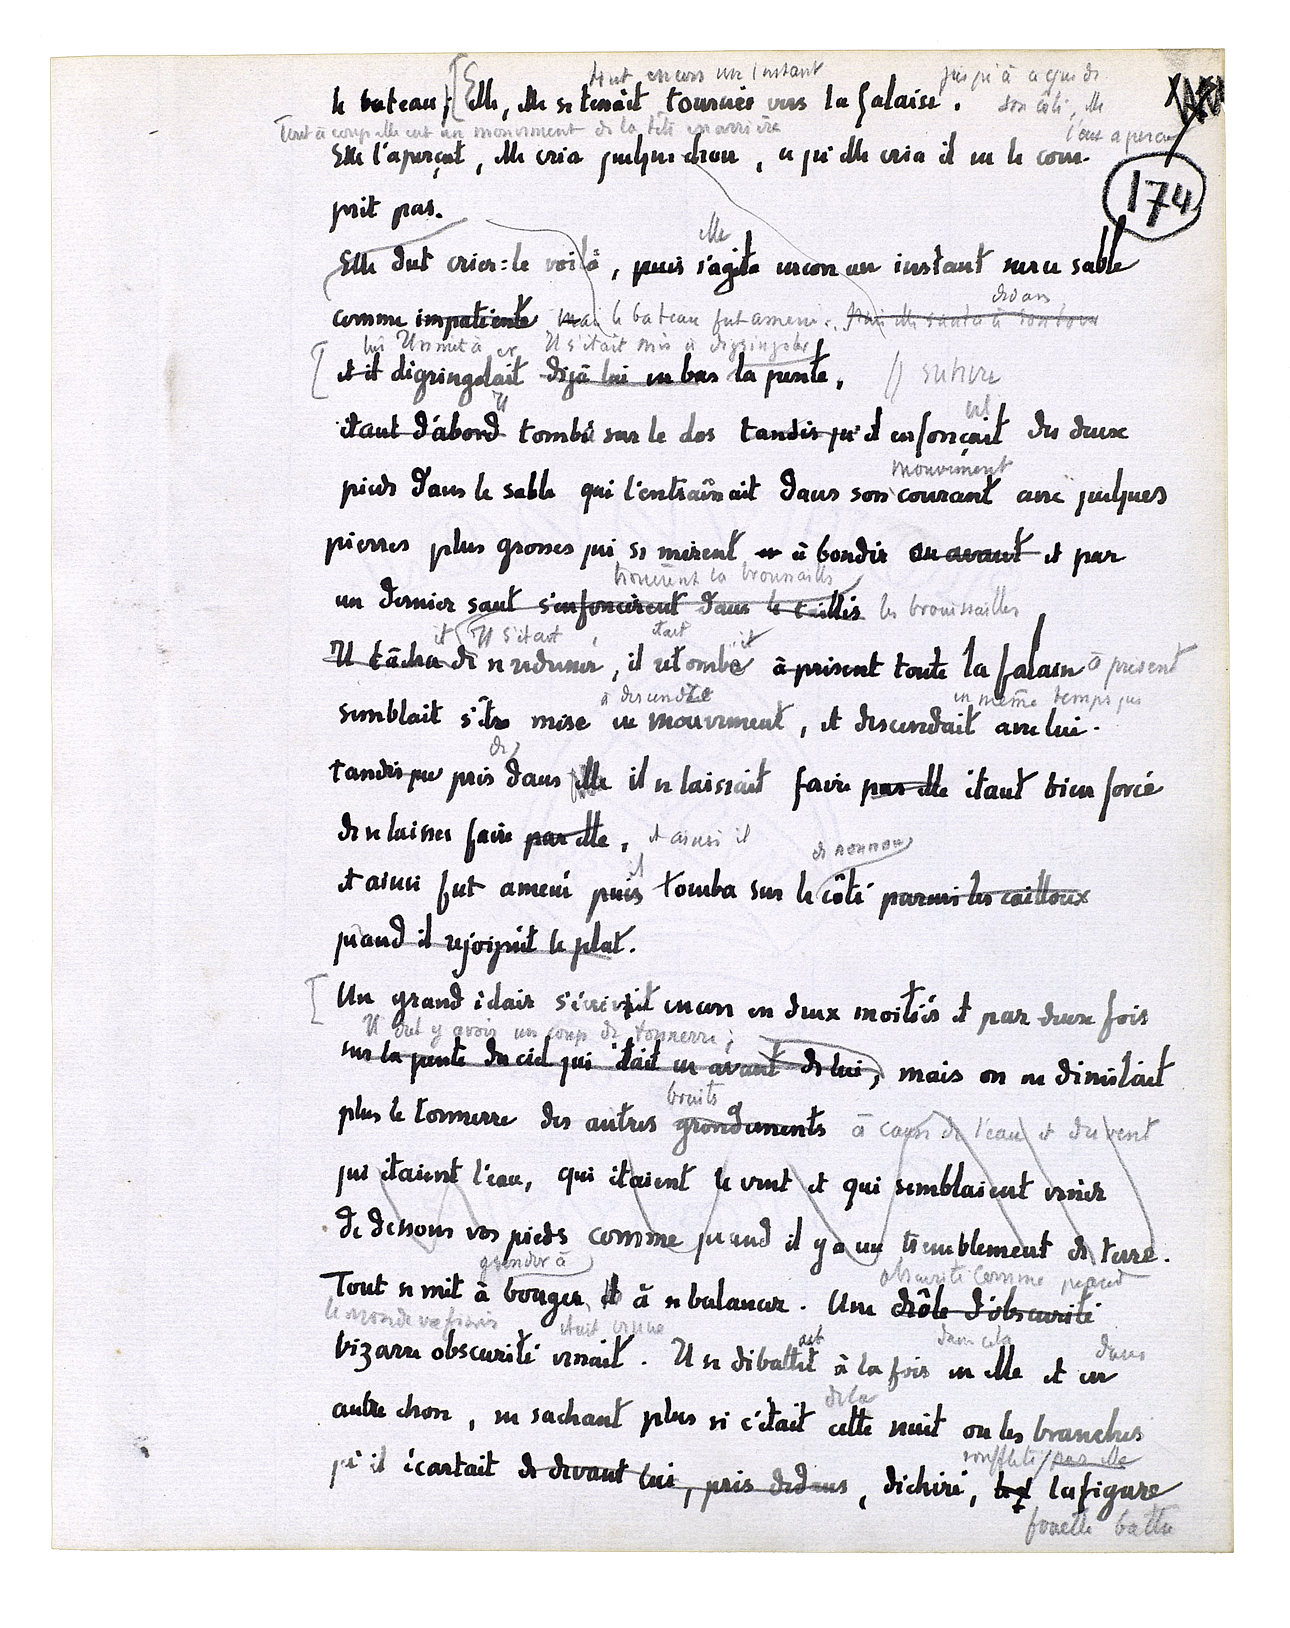 fut encore un instant jusqu'à ce que de
le bateau; [Elle, elle se tenait tournée vers la falaise. son côté, elle
Tout à coup elle eut un mouvement de la tête en arrière l'eut aperçu
174
Elle l'aperçut, elle cria quelque chose, ce qu'elle cria il ne le com-
prit pas.
elle
Elle dut crier: le voilà, puis s'agita encore un instant sur ce sable
dedans
comme impatiente le bateau fut amené. puis elle sauta à son tour
lui Il se mit à Il s'était mis à dégringoler
[et il dégringolait déjà lui en bas la pente, // suture
Il
étant d'abord tombé sur le dos tandis qu'il enfonçait des deux
mouvement
pieds dans le sable qui l'entraînait dans son courant avec quelques
pierres plus grosses qui se mirent à bondir en avant et par
trouèrent la broussaille
un dernier saut s'enfoncèrent dans le taillis les broussailles
et Il s'était, était
Il tâcha de se redresser, il retomba à présent toute la falaise à présent
à descendre en même temps que
semblait s'être mise en mouvement, et descendait avec lui.
tandis que pris dans elle il se laissait faire par elle étant bien forcé
de se laisser faire par elle, et ainsi il
il de nouveau
et ainsi fut amené puis tomba sur le côté parmi les cailloux
quand il rejoignit le plat.
[Un grand éclair s'écrivit encore en deux moitiés et par deux fois
Il dut y avoir un coup de tonnerre;
sur la pente du ciel qui était en avant de lui, mais on ne démêlait
bruits
plus le tonnerre des autres grondements à cause de l'eau et du vent
qui étaient l'eau, qui étaient le vent et qui semblaient venir
de dessous vos pieds comme quand il y a un tremblement de terre.
gronder à obscurité comme quand
Tout se mit à bouger et à se balancer. Une drôle d'obscurité
le monde va finir était venue dans cela dans
bizarre obscurité venait. Il se débattit à la fois en elle et en
de la
autre chose, ne sachant plus si c'était cette nuit ou les branches
soufflète/par elle
qu'il écartait de devant lui, pris dedans, déchiré, la figure
fouetté battu